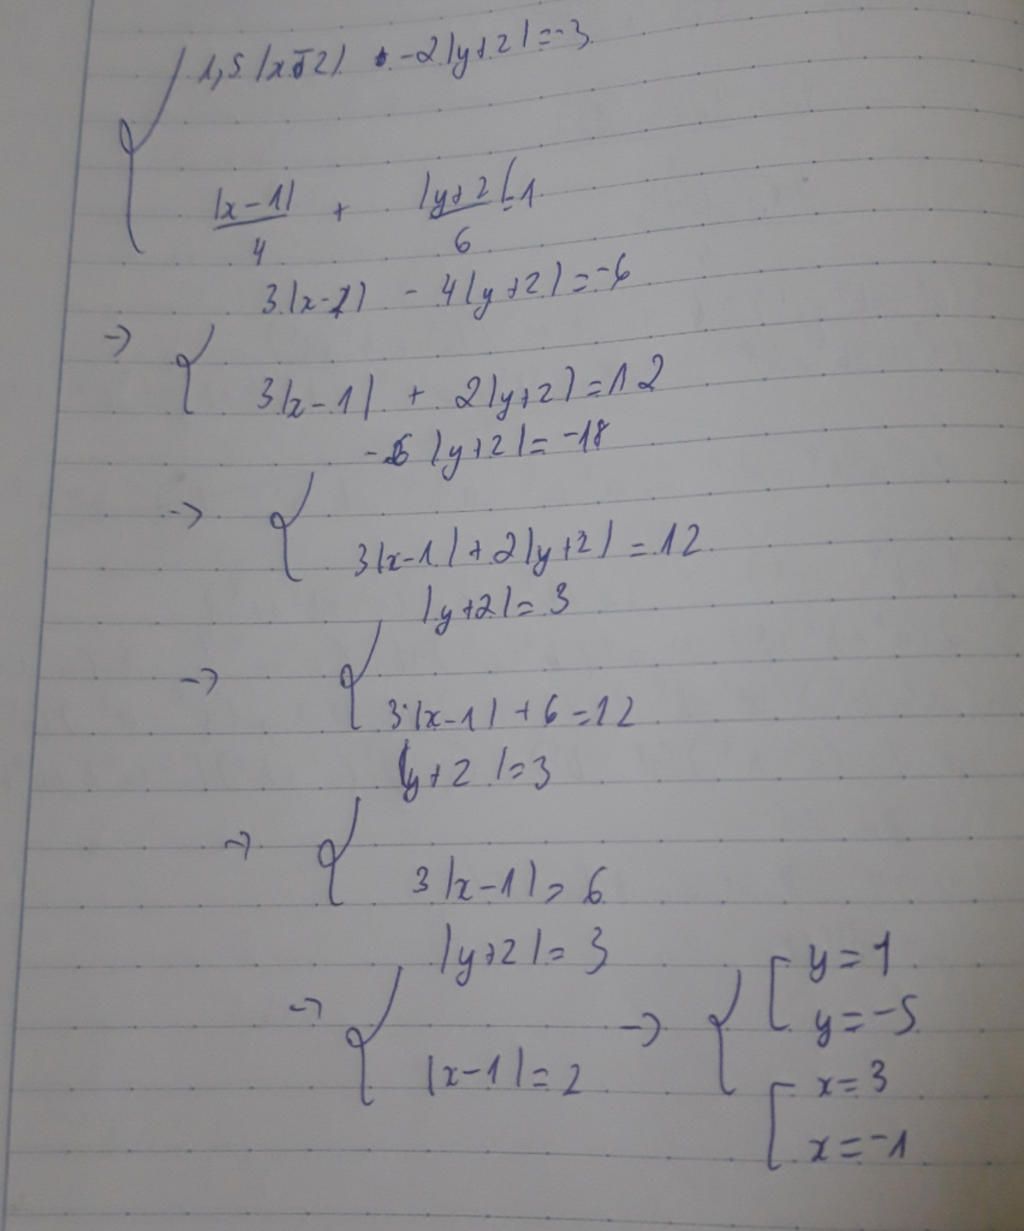 1,5 |x-2| -2|y+2|=-3
|x-1|/4 + |y+2|/6=1
3|x-1| - 4|y+2|=-6
→ 3|x-1| + 2|y+2|=12
-6 |y+2|=-18
→ 3|x-1|+2|y+2|=12
|y+2|=3
→ 3|x-1|+6=12
|y+2|=3
→ 3|x-1|=6
|y+2|=3
→ |x-1|=2
→ y=1
y=-5
x=3
x=-1